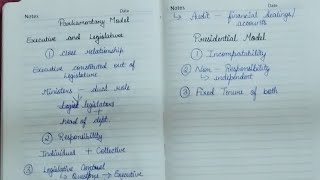 Notes
Date
Parliamentary Model
Executive and Legislature
① close relationship
Executive constituted out of
Legislature
Ministers - dual role
legislators
+
Head of dept.
② Responsibility
Individual + Collective
③ Legislative Control
↳ Questions → Executive
Notes
Date
↳ Audit - financial dealings/
accounts
Presidential Model
① Incompatability
② Non - Responsibility
↳ independent
③ Fixed Tenure of both